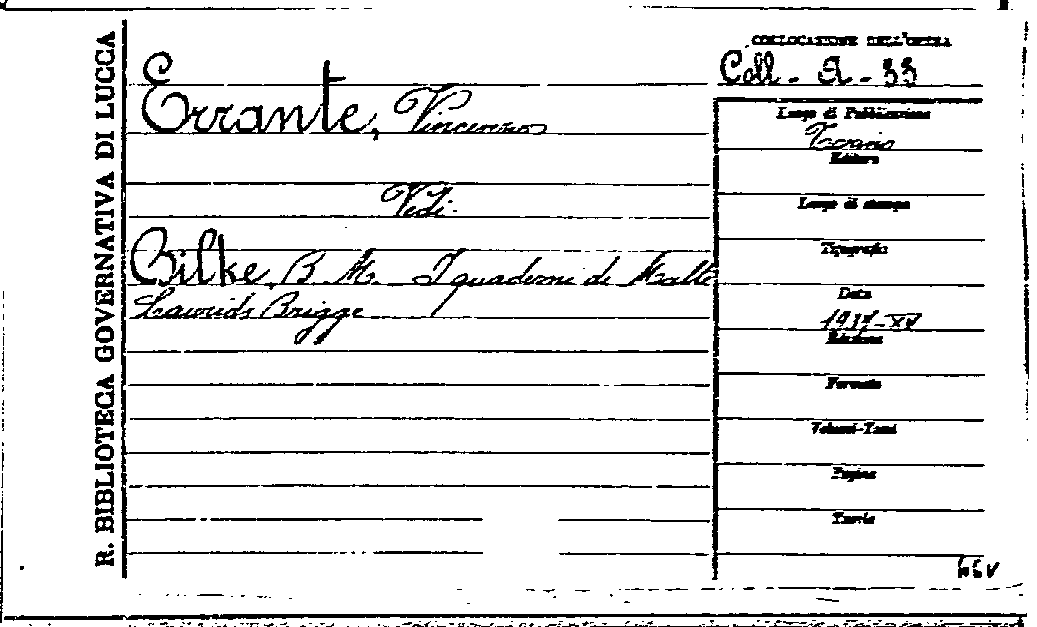 R. BIBLIOTECA GOVERNATIVA DI LUCCA
Errante, Vincenzo
Vedi.
Bilke, B. M. - I quaderni di Malte
Laurids Brigge
COLLOCAZIONE DELL'OPERA
Coll - A - 33
Luogo di Pubblicazione
Torino
Editore
Luogo di stampa
Tipografia
Data
1937-XV
Edizione
Formato
Volumi-Tomi
Pagine
Tavole